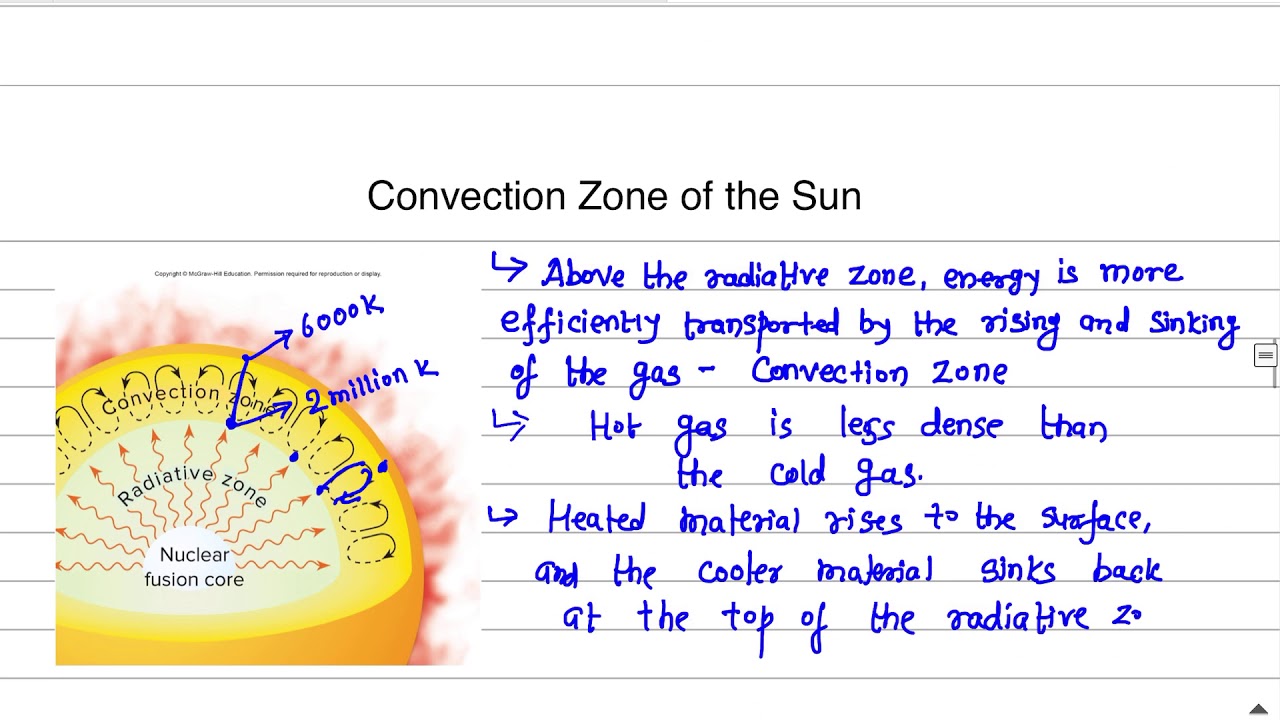 Convection Zone of the Sun
Copyright © McGraw-Hill Education. Permission required for reproduction or display.
6000K
2 million K
Convection zone
Radiative zone
Nuclear
fusion core
↳ Above the radiative zone, energy is more
efficiently transported by the rising and sinking
of the gas - Convection zone
↳ Hot gas is less dense than
the cold gas.
↳ Heated material rises to the surface,
and the cooler material sinks back
at the top of the radiative zo